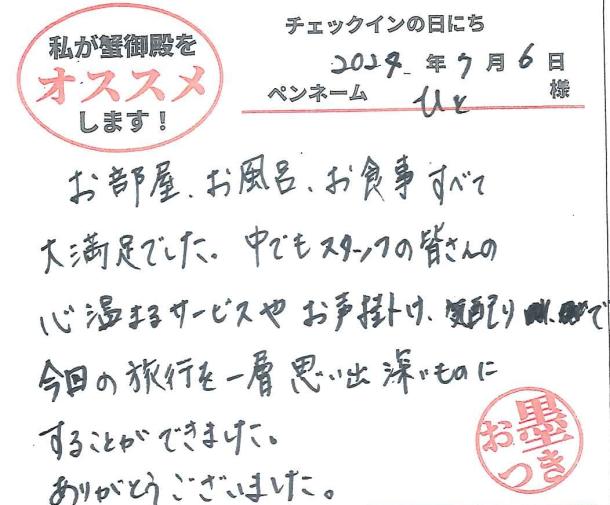 私が蟹御殿を
オススメ
します！
チェックインの日にち
2024年7月6日
ペンネーム ひと 様
お部屋、お風呂、お食事すべて
大満足でした。中でもスタッフの皆さんの
心温まるサービスやお声掛け、気配りで
今回の旅行を一層思い出深いものに
することができました。
ありがとうございました。
お墨つき